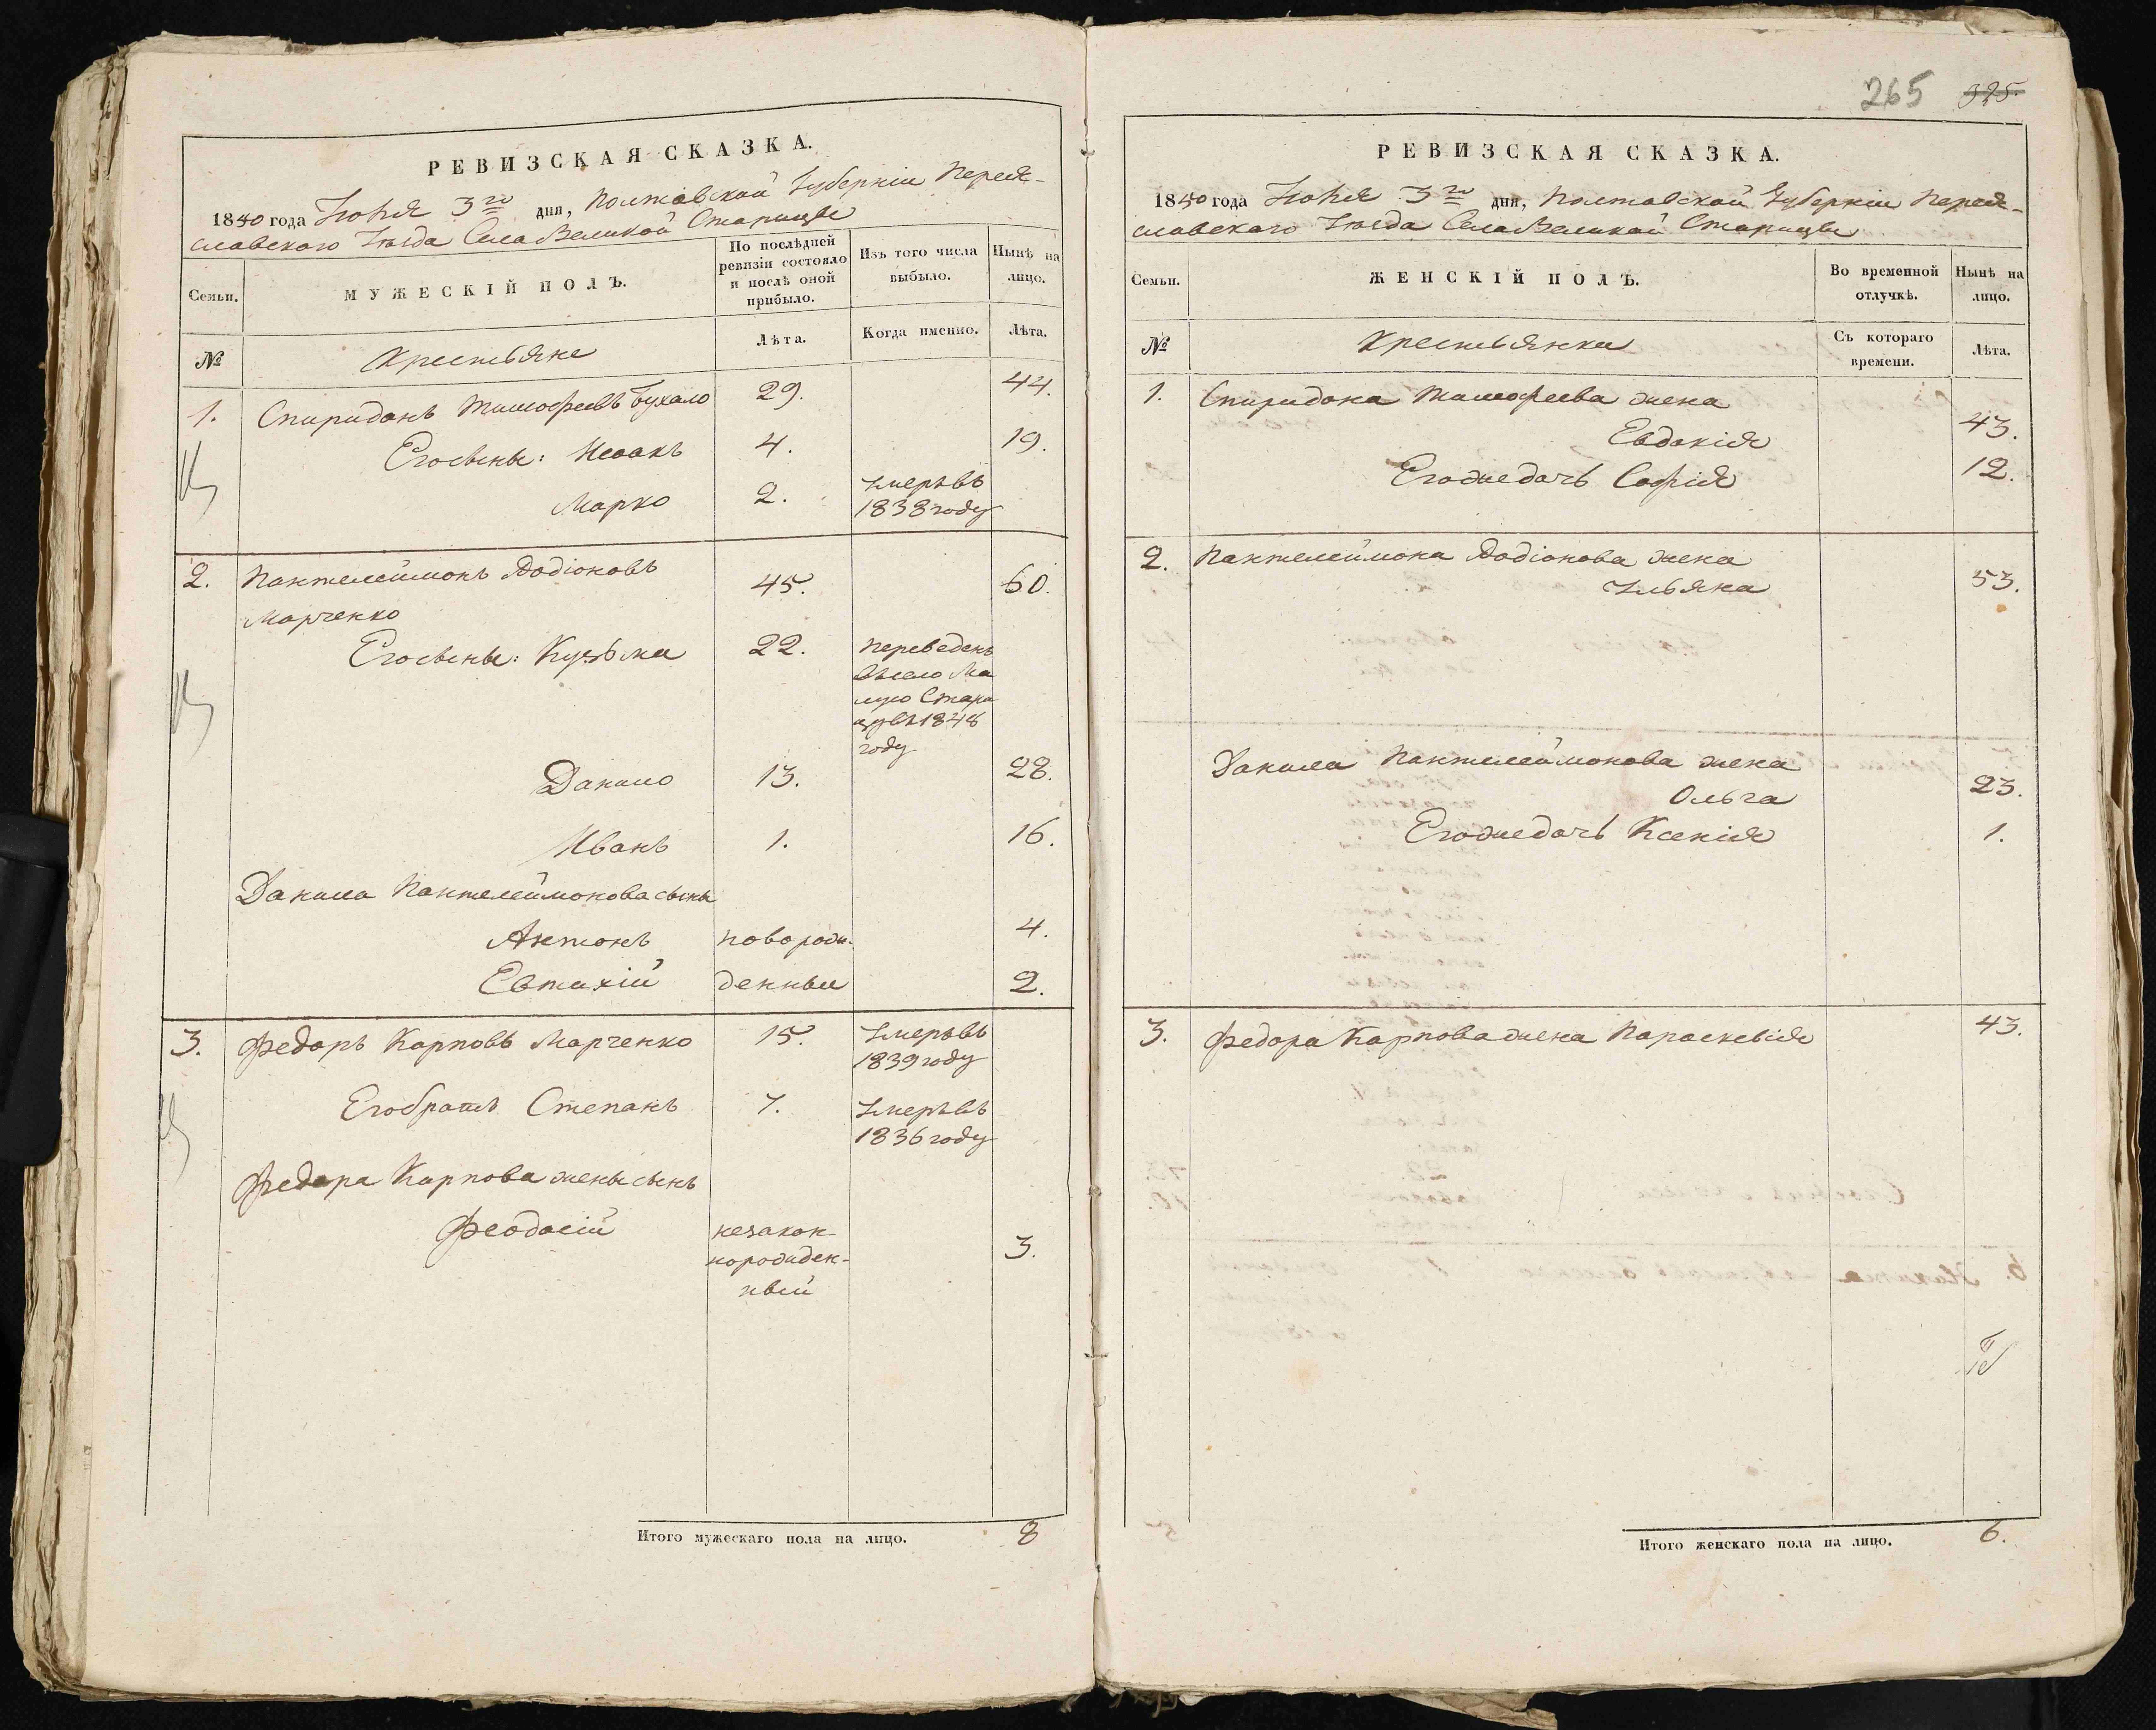 РЕВИЗСКАЯ СКАЗКА.
1850 года Іюня 3го дня, Полтавской Губерніи Перея-
славского Уѣзда Села Великой Старицы
Семьи.
МУЖЕСКІЙ ПОЛЪ.
По послѣдней
ревизіи состояло
и послѣ оной
прибыло.
Изъ того числа
выбыло.
Нынѣ на
лицо.
№
Крестьяне
Лѣта.
Когда именно.
Лѣта.
1. Спиридонъ Тимофеевъ Бухало 29. 44.
Его сыны: Исаакъ 4. 19.
Марко 2. Умеръ въ
1838 году
2. Пантелеймонъ Родіоновъ 45. 60.
Марченко
Его сыны: Кузьма 22. Переведенъ
въ село Ма
лую Стари
цу въ 1848
году
Данило 13. 28.
Иванъ 1. 16.
Данила Пантелеймонова сыны
Антонъ новорож- 4.
Евтихій денные 2.
3. Федоръ Карповъ Марченко 15. Умеръ въ
1839 году
Его братъ Степанъ 7. Умеръ въ
1836 году
Федора Карпова жены сынъ
Феодосій незакон-
норожден- 3.
ный
Итого мужескаго пола на лицо. 8
265 325.
РЕВИЗСКАЯ СКАЗКА.
1850 года Іюня 3го дня, Полтавской Губерніи Перея-
славского Уѣзда Села Великой Старицы
Семьи.
ЖЕНСКІЙ ПОЛЪ.
Во временной
отлучкѣ.
Нынѣ на
лицо.
№
Крестьянки
Съ котораго
времени.
Лѣта.
1. Спиридона Тимофеева жена
Евдокія 43.
Его же дочь Софія 12.
2. Пантелеймона Родіонова жена
Ульяна 53.
Данила Пантелеймонова жена
Ольга 23.
Его же дочь Ксенія 1.
3. Федора Карпова жена Параскевія 43.
Итого женскаго пола на лицо. 6.